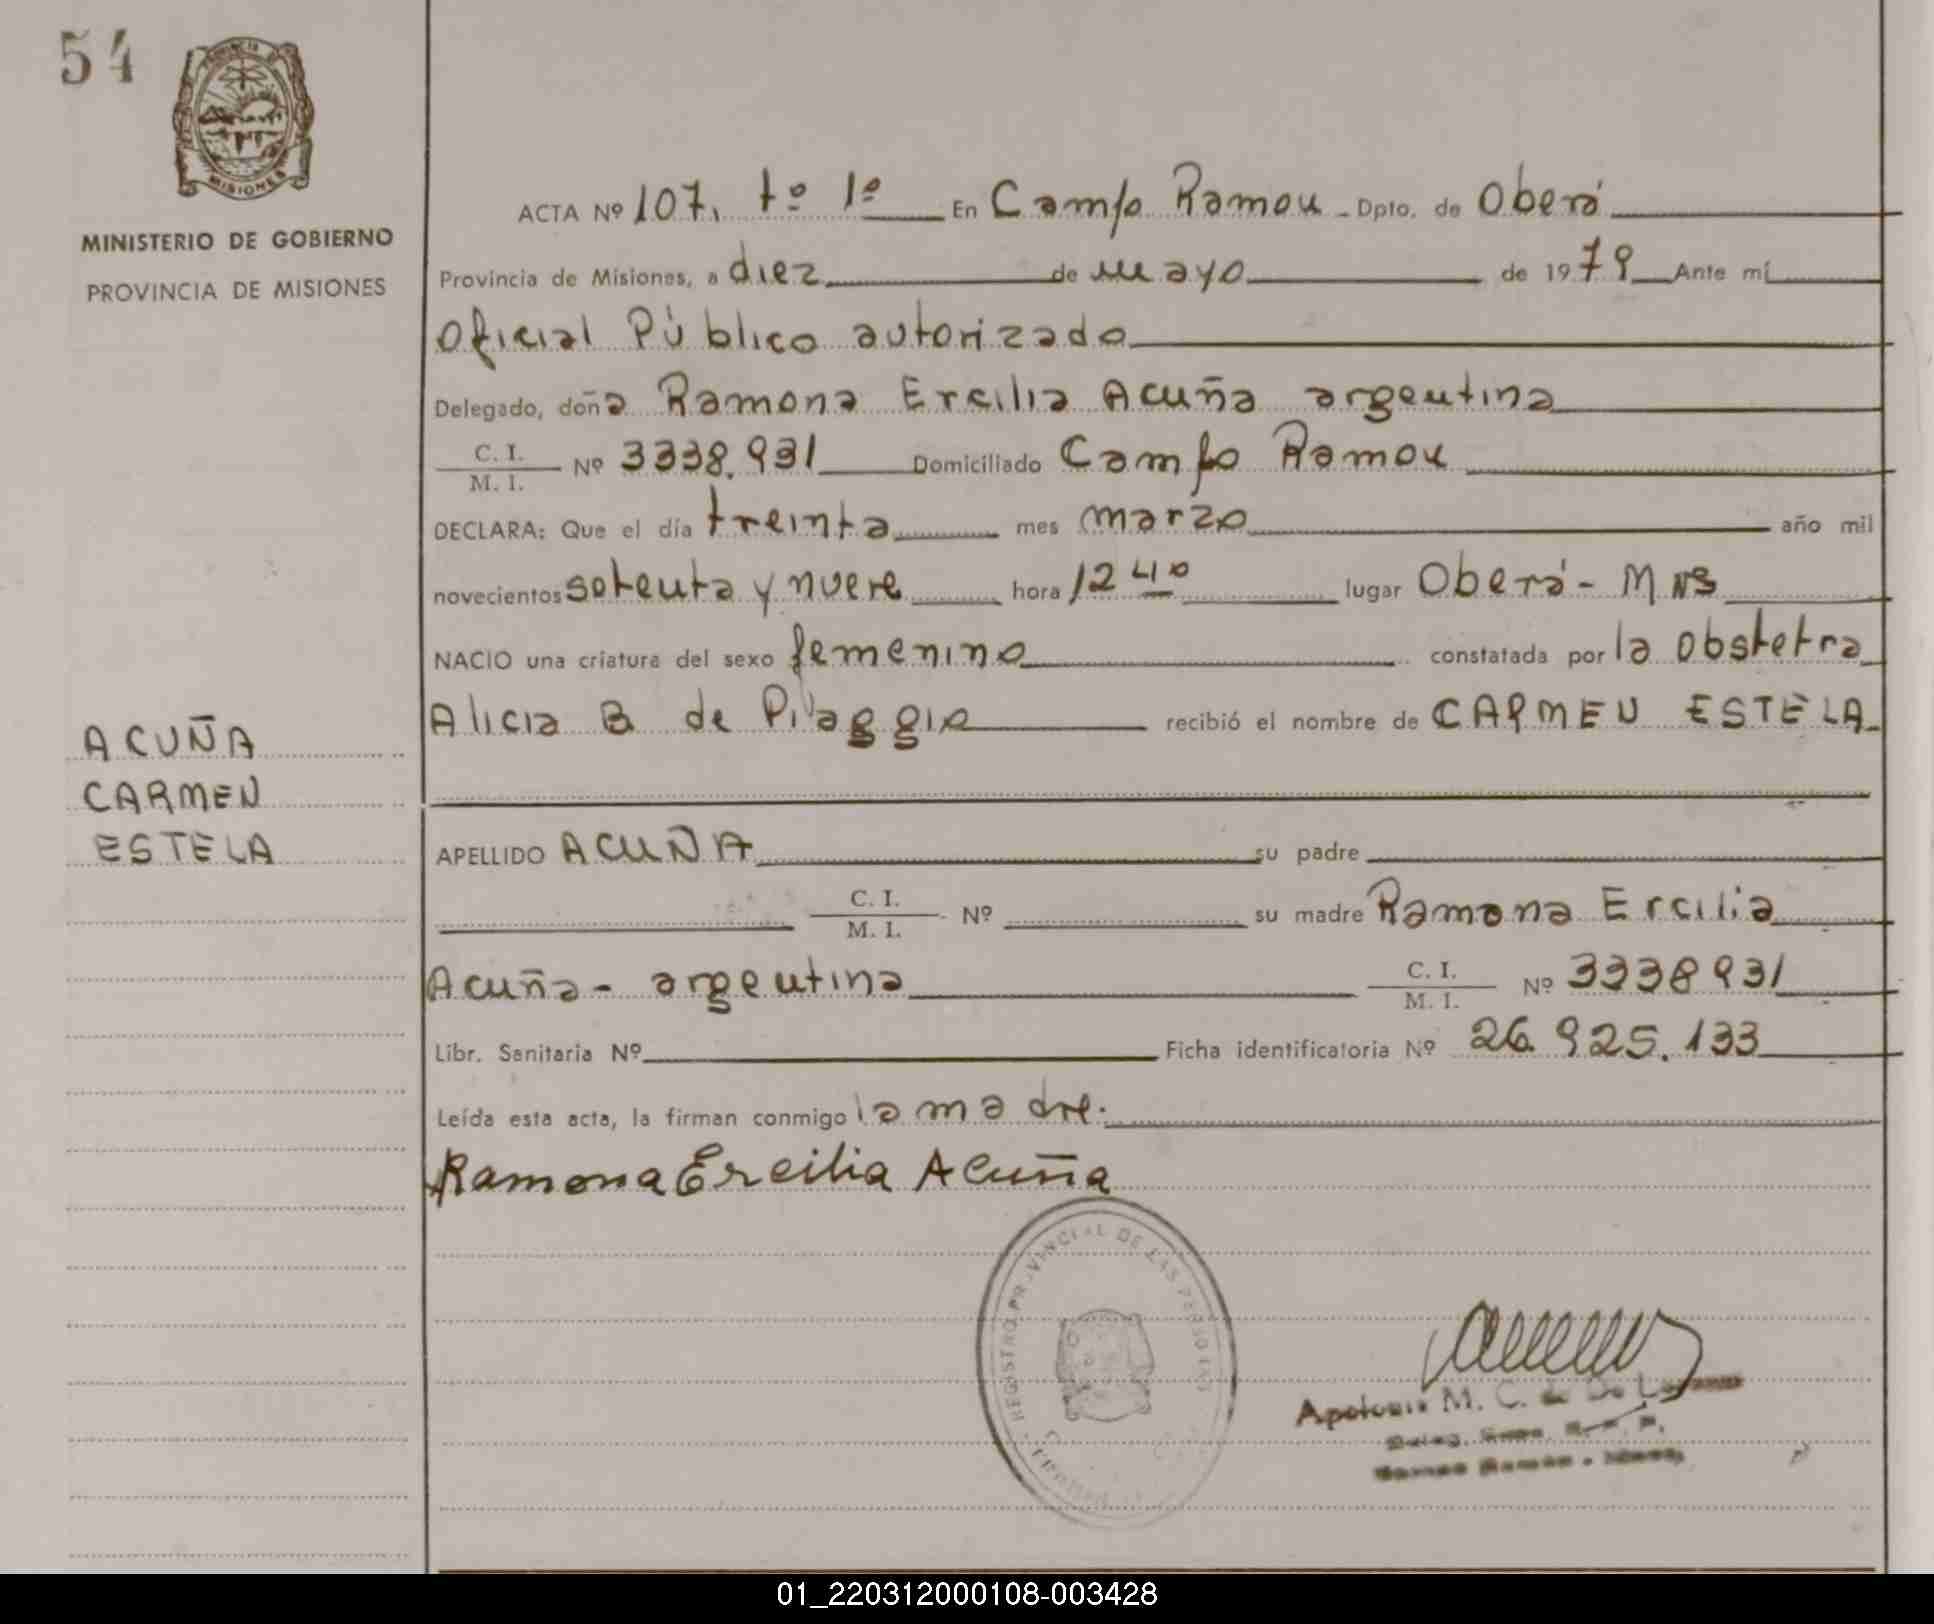 54
MISIONES
MINISTERIO DE GOBIERNO
PROVINCIA DE MISIONES
ACUÑA
CARMEN
ESTELA
ACTA Nº 107, tº 1º En Campo Ramon - Dpto. de Oberá
Provincia de Misiones, a diez de mayo de 1979 Ante mí
Oficial Público autorizado
Delegado, doña Ramona Ercilia Acuña argentina
C. I.
M. I. Nº 3338.931 Domiciliado Campo Ramon
DECLARA: Que el día treinta mes marzo año mil
novecientos setenta y nueve hora 12 40 lugar Oberá - Mns
NACIO una criatura del sexo femenino constatada por la obstetra
Alicia B de Pilaggio recibió el nombre de CARMEN ESTELA
APELLIDO ACUÑA su padre
C. I.
M. I. Nº su madre Ramona Ercilia
Acuña - argentina C. I.
M. I. Nº 3338931
Libr. Sanitaria Nº Ficha identificatoria Nº 26.925.133
Leída esta acta, la firman conmigo la madre.
Ramona Ercilia Acuña
REGISTRO PROVINCIAL DE LAS PERSONAS
Apolonia M. C. de De
01_220312000108-003428